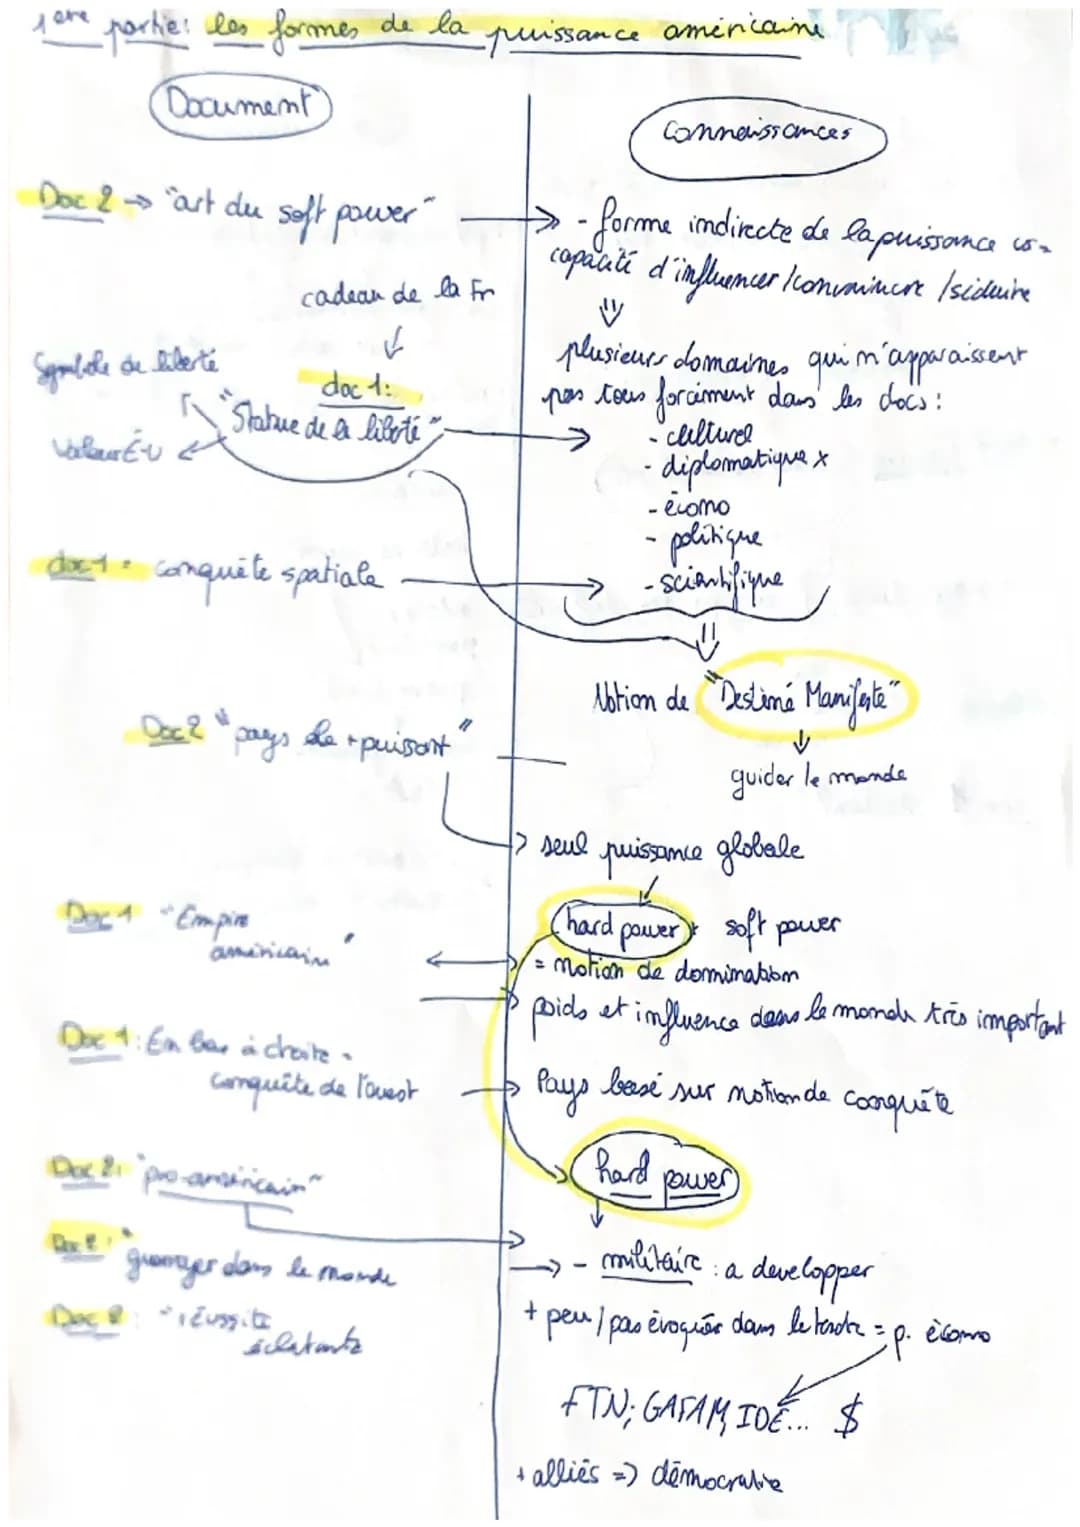 1ère partie: les formes de la puissance américaine
Document
connaissances
Doc 2 → "art du soft power"
- forme indirecte de la puissance
capacité d'influencer / convaincre / séduire
cadeau de la Fr
Symbole de liberté
doc 1:
"Statue de la liberté"
Valeur É-U
plusieurs domaines qui n'apparaissent
pas tous forcément dans les docs:
- culturel
- diplomatique x
- écono
- politique
- scientifique
doc 1 = conquête spatiale
Notion de "Destiné Manifeste"
guider le monde
Doc 2 "pays le + puissant"
seul puissance globale
Doc 1 "Empire
américain"
hard power + soft power
= notion de domination
poids et influence dans le monde très important
Doc 1: En bas à droite =
conquête de l'ouest
Pays basé sur notion de conquête
Doc 2: "pro-américain"
hard power
Doc 2: "guerroyer dans le monde
- militaire : a developper
Doc 2: "réussite
éclatante
+ peu / pas évoquer dans le texte = p. écono
FTN; GAFAM, IDE... $
+ alliés => démocratie